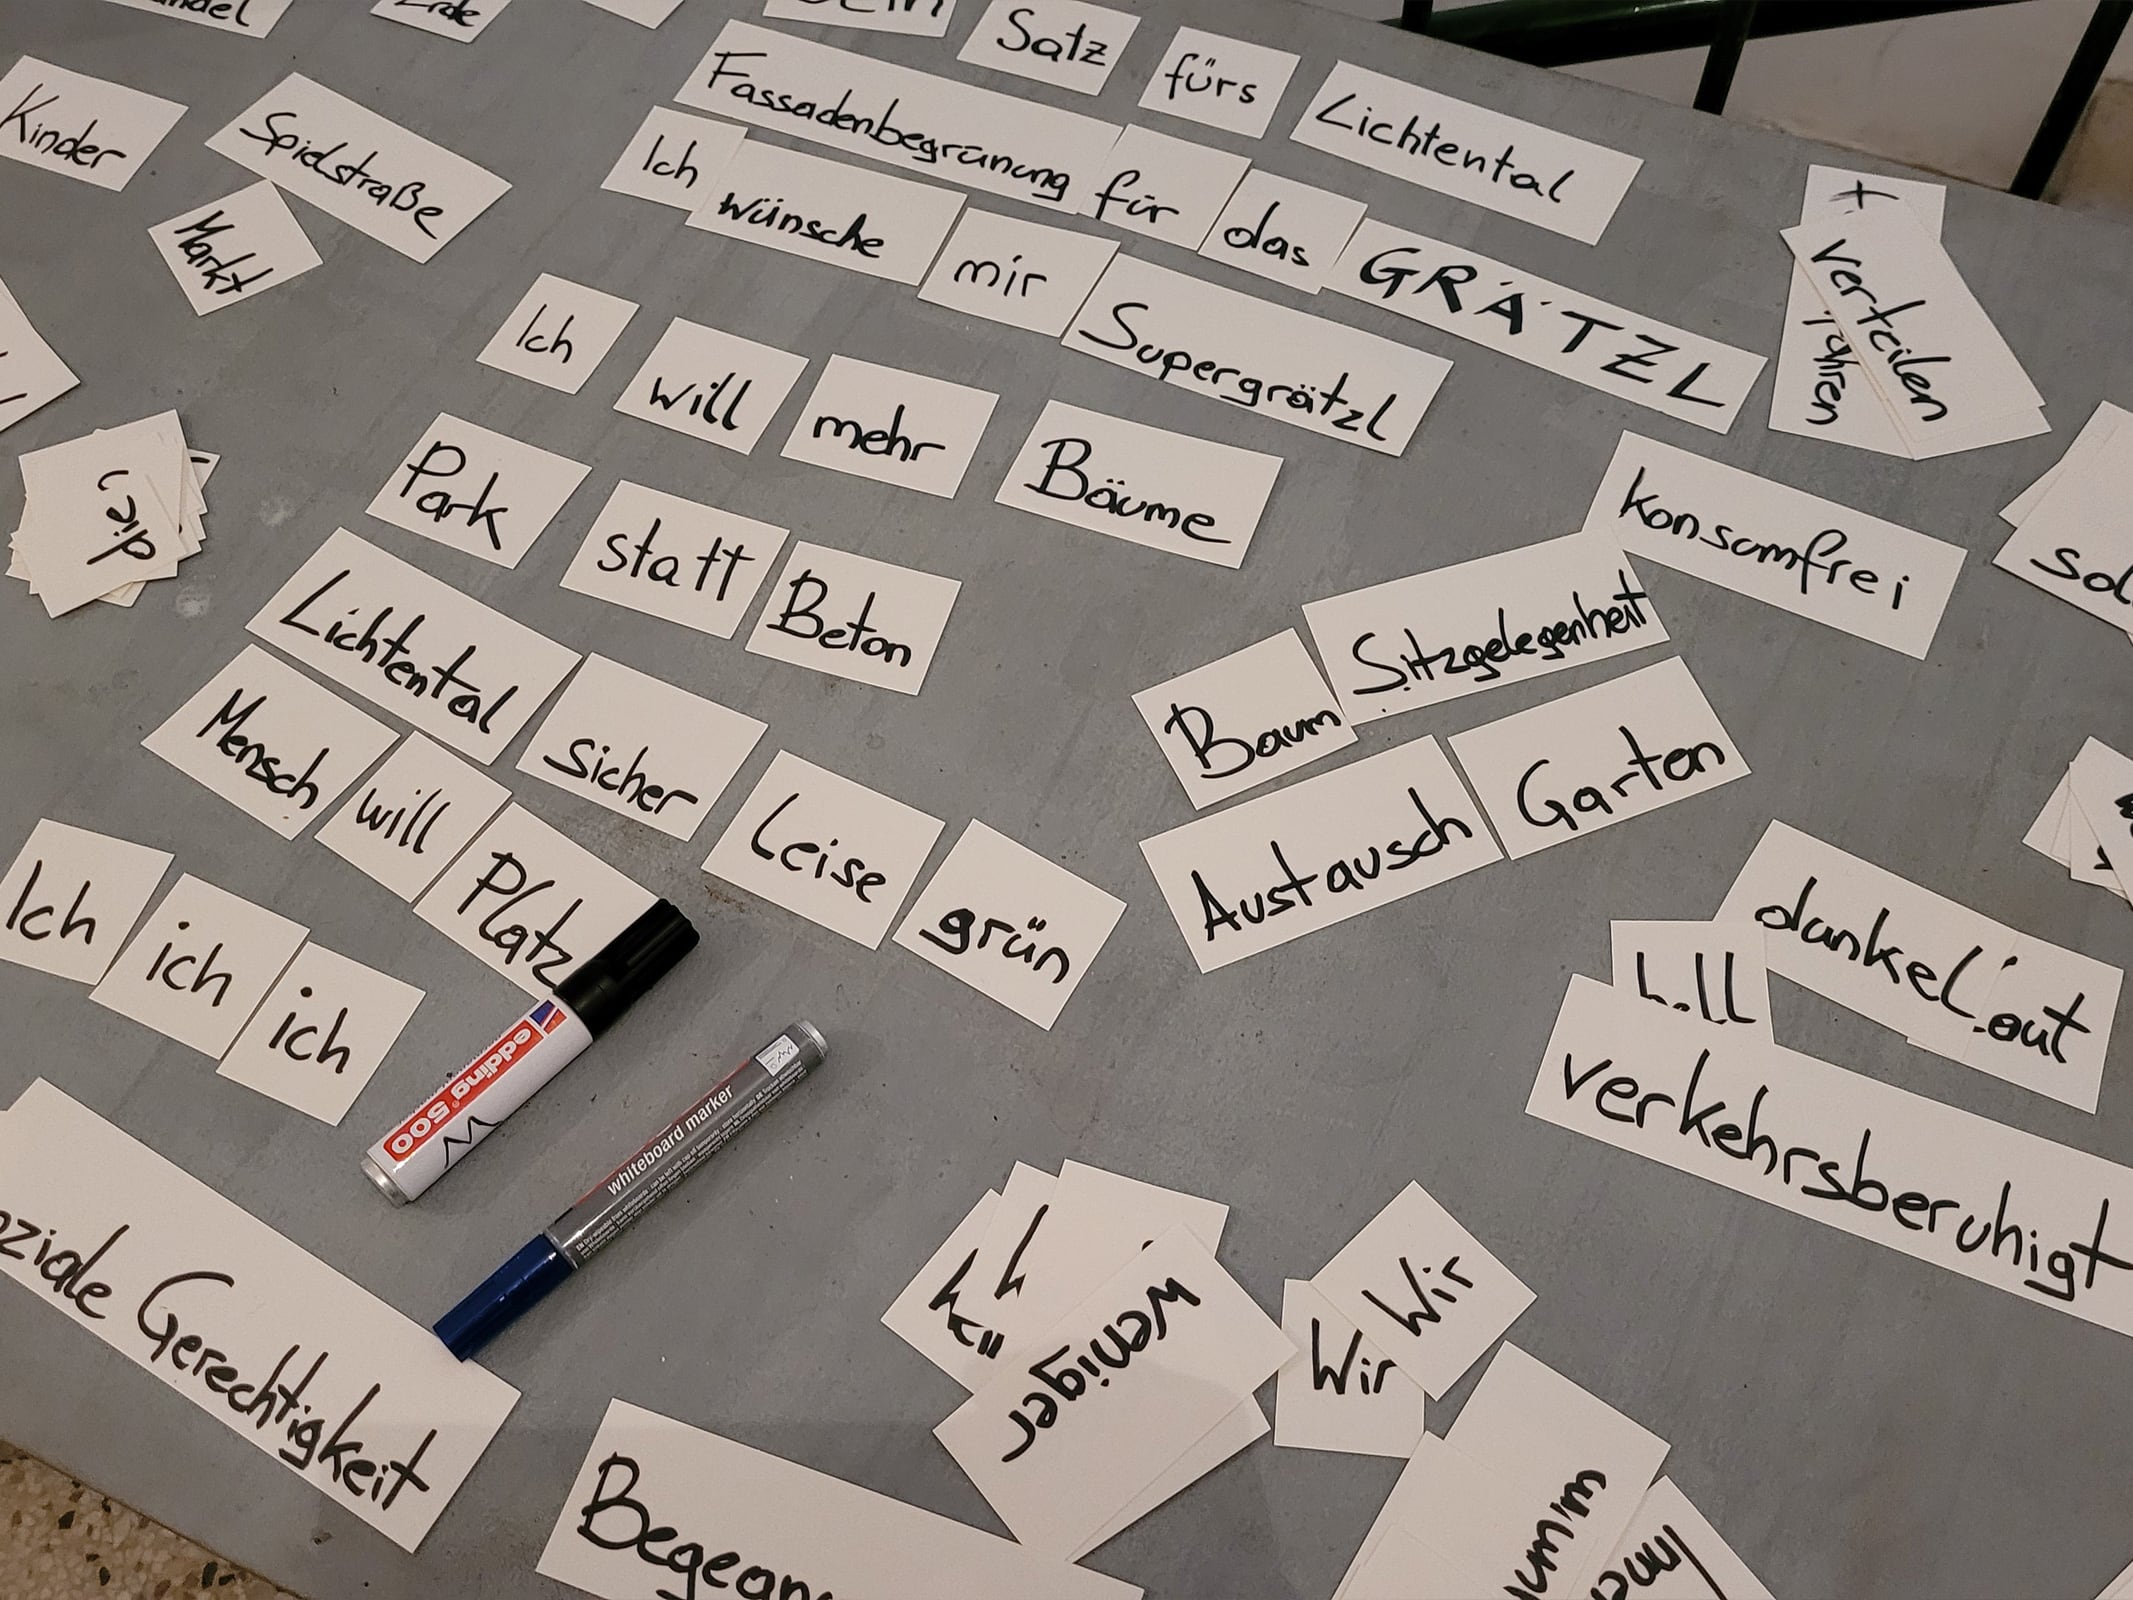 Erde
Satz fürs Lichtental
Kinder
Spielstraße
Markt
Fassadenbegrünung für das GRÄTZL
Ich wünsche mir Supergrätzl
Ich will mehr Bäume
Park statt Beton
Lichtental sicher Leise grün
Mensch will Platz
Ich ich ich
die
verteilen
konsumfrei
Baum Sitzgelegenheit
Austausch Garten
verkehrsberuhigt
edding 500
whiteboard marker
Gerechtigkeit
weniger
Wir
Wir